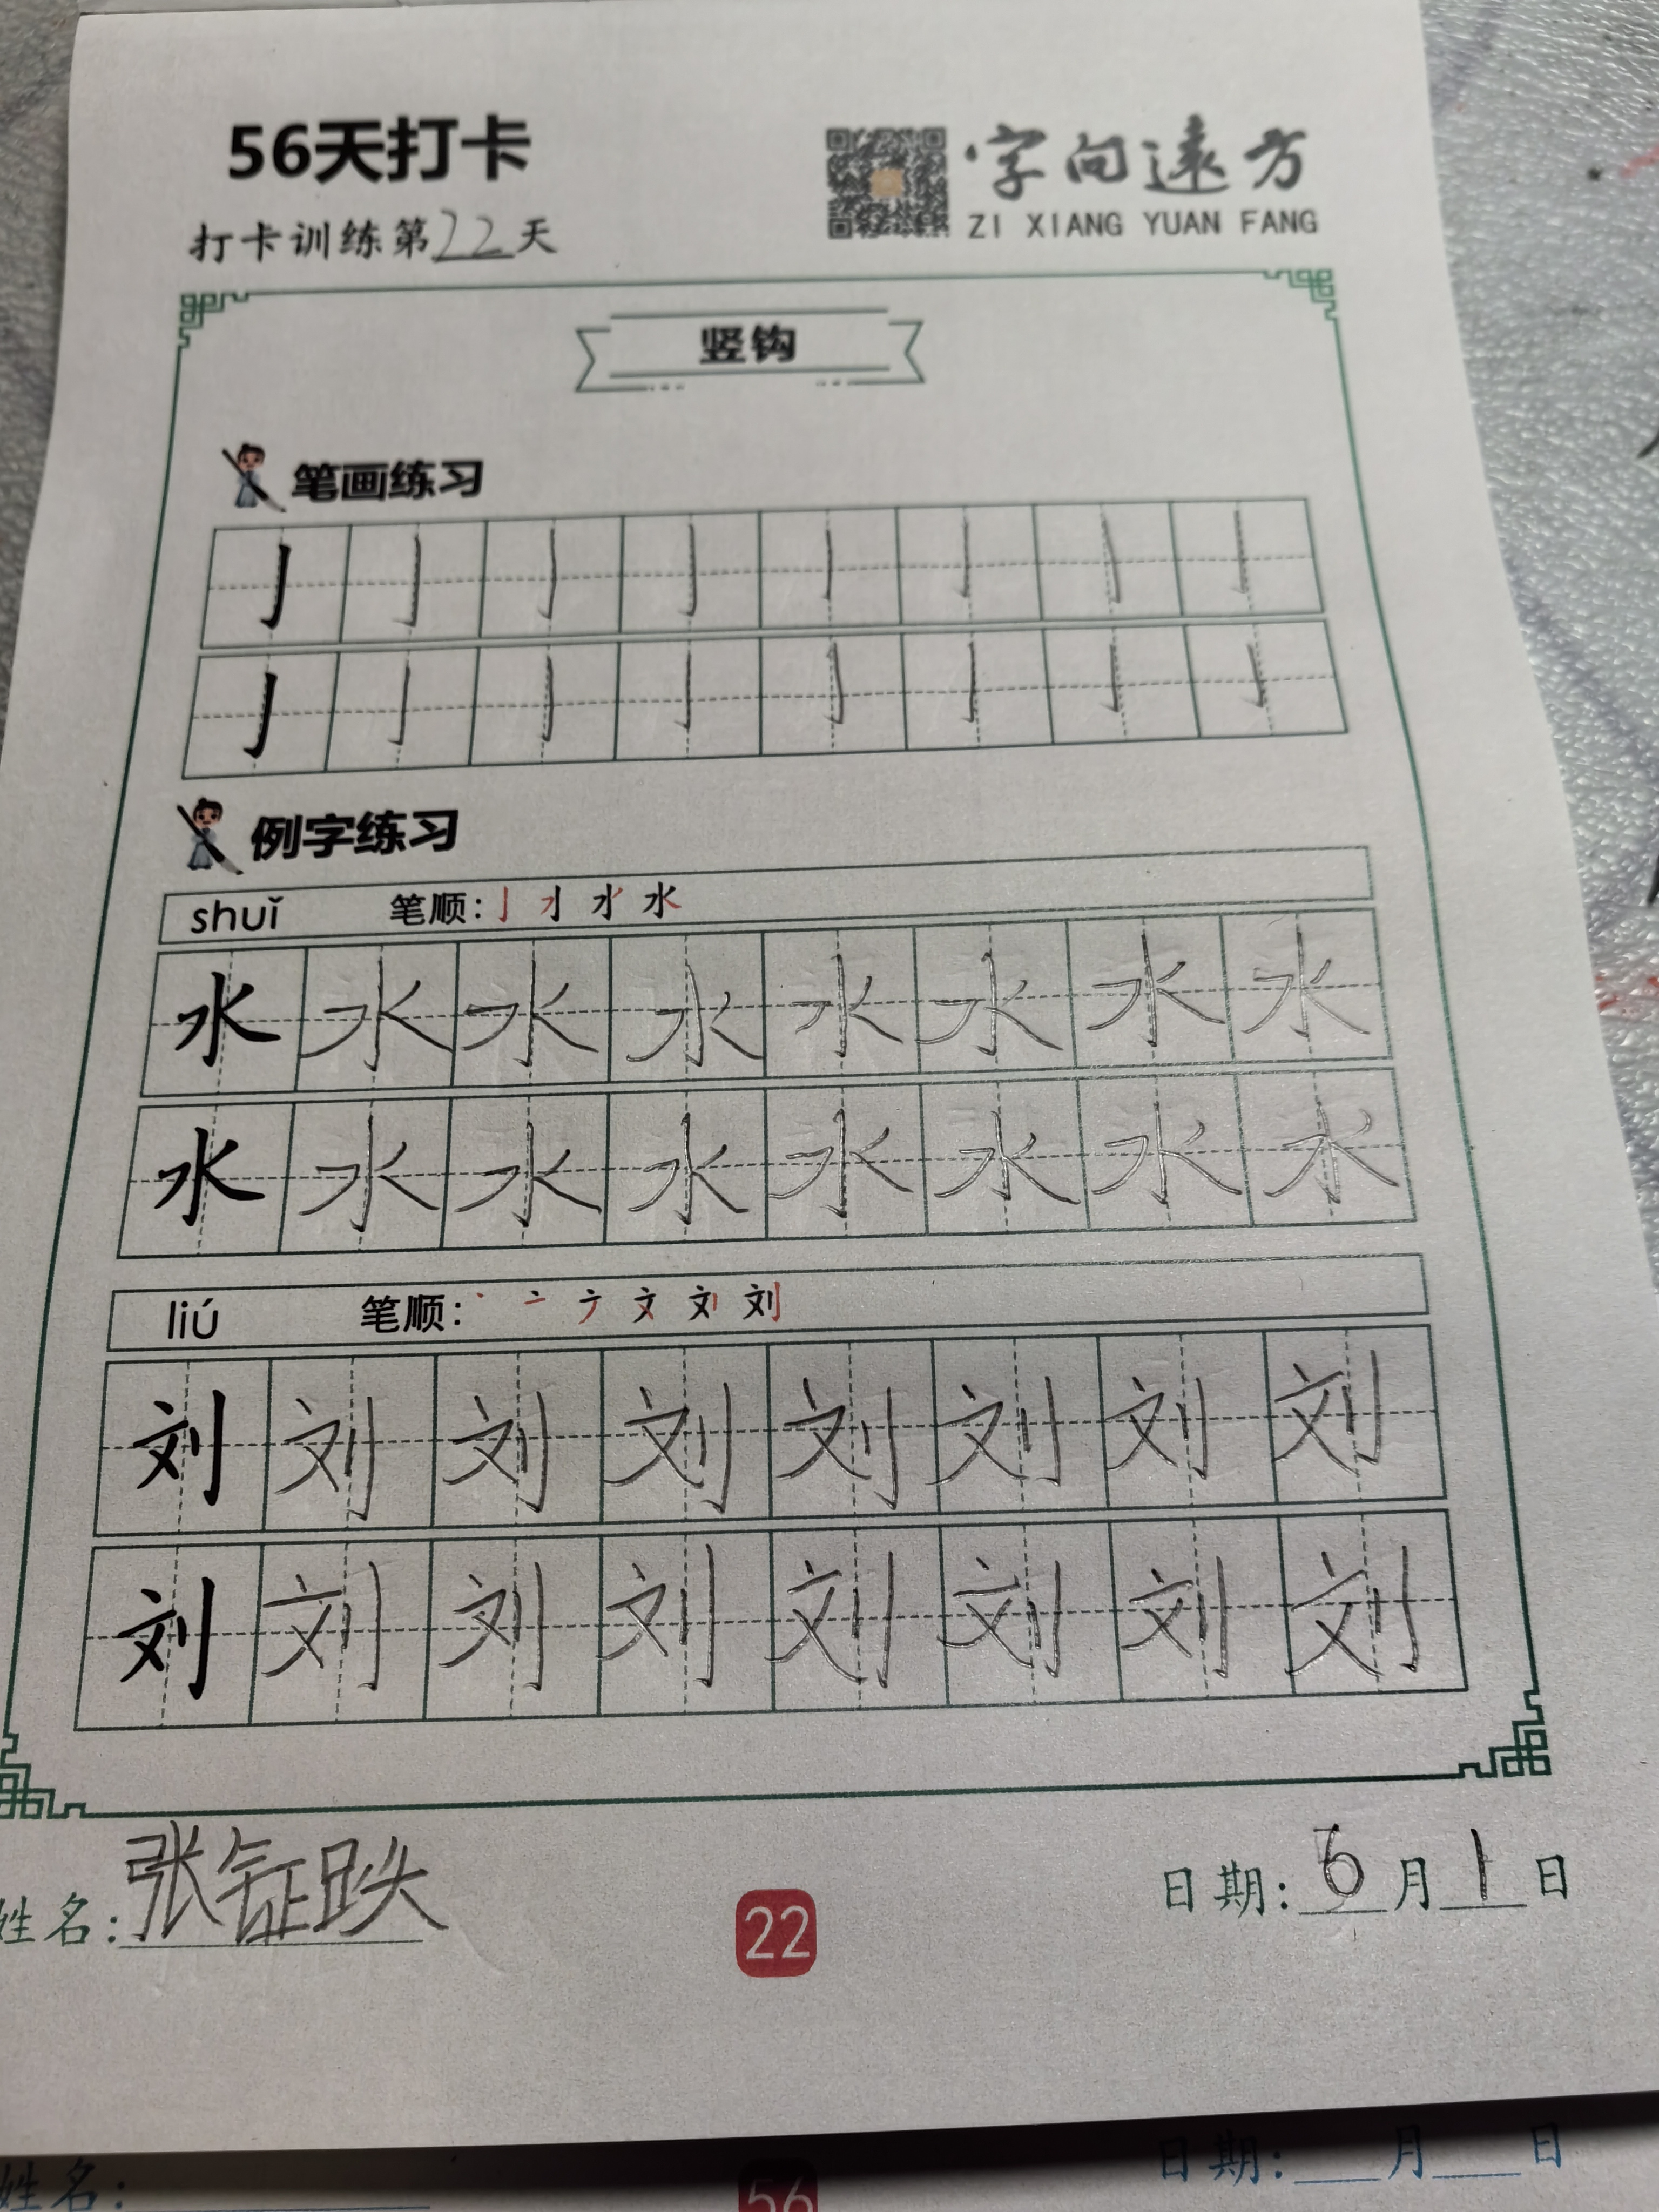 56天打卡
字向遠方
ZI XIANG YUAN FANG
打卡训练第22天
竖钩
笔画练习
亅 亅 亅 亅 亅 亅 亅 亅
亅 亅 亅 亅 亅 亅 亅 亅
例字练习
shuǐ 笔顺: 水
水 水 水 水 水 水 水 水
水 水 水 水 水 水 水 水
liú 笔顺: 丶 亠 文 刘
刘 刘 刘 刘 刘 刘 刘 刘
刘 刘 刘 刘 刘 刘 刘 刘
姓名: 张钲昳
22
日期: 6月1日
姓名:
56
日期: 月 日